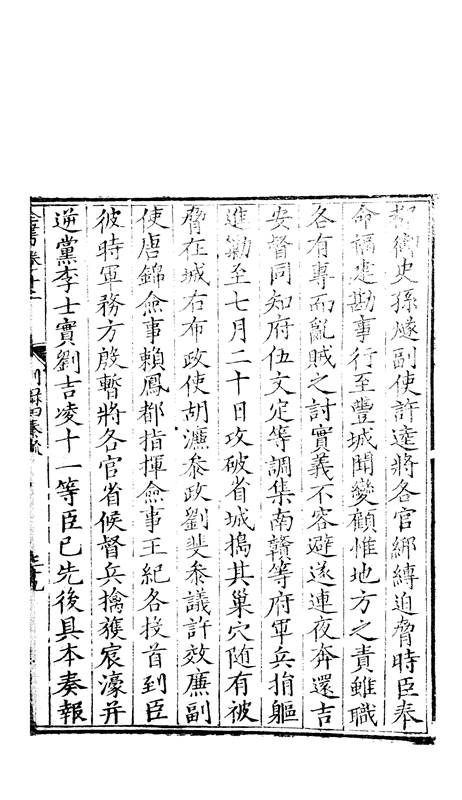 都御史孫燧副使許逵將各官綁縛迫脅時臣奉
命福建勘事行至豐城聞變顧惟地方之責雖職
各有專而亂賊之討實義不容避遂連夜奔還吉
安督同知府伍文定等調集南贛等府軍兵捐軀
進勦至七月二十日攻破省城搗其巢穴隨有被
脅在城右布政使胡濂叅政劉斐叅議許效廉副
使唐錦僉事賴鳳都指揮僉事王紀各投首到臣
彼時軍務方殷暫將各官省候督兵擒獲宸濠并
逆黨李士實劉吉凌十一等臣已先後具本奏報
全書卷十二 別録四奏疏